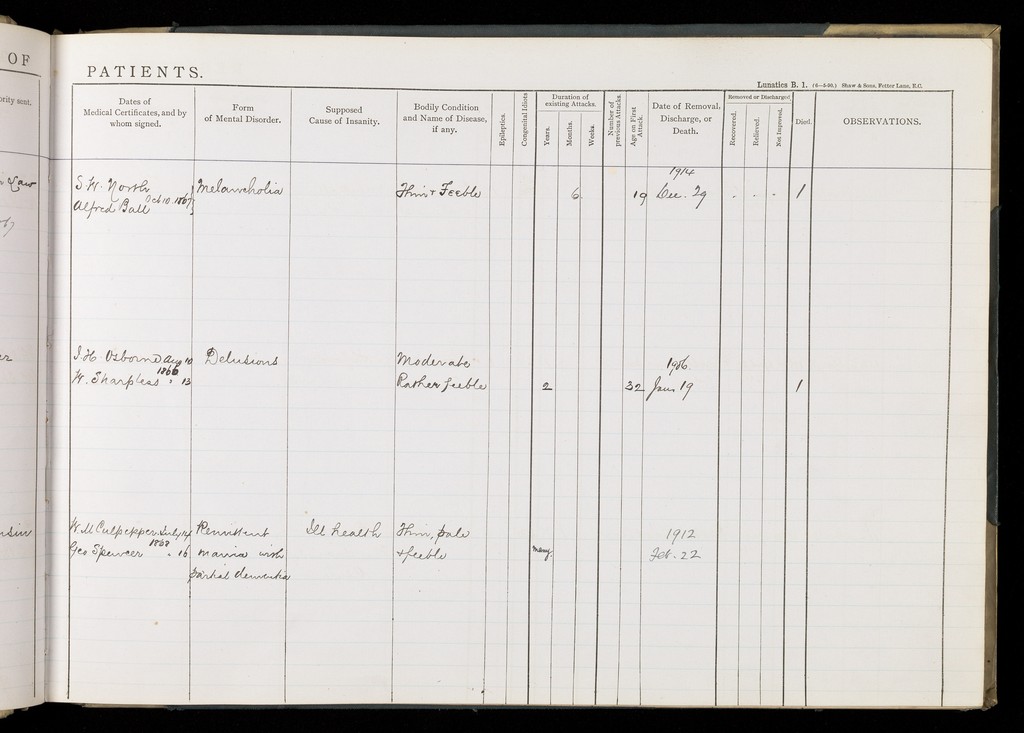 OF
PATIENTS.
Lunatics B. 1. (6—5-90.) Shaw & Sons, Fetter Lane, E.C.
ority sent.
Dates of
Medical Certificates, and by
whom signed.
Form
of Mental Disorder.
Supposed
Cause of Insanity.
Bodily Condition
and Name of Disease,
if any.
Epileptics.
Congenital Idiots
Duration of
existing Attacks.
Years.
Months.
Weeks.
Number of
previous Attacks.
Age on First
Attack.
Date of Removal,
Discharge, or
Death.
Removed or Discharged
Recovered.
Relieved.
Not Improved.
Died.
OBSERVATIONS.
Law
S. W. North
Alfred Ball Oct 10. 1867
Melancholia
Thin & Feeble
6
19
1914
Dec. 29
- - -
1
J. H. Osborne Aug 10
1866
W. Sharpless " 13
Delusions
Moderate
Rather feeble
2
32
1906.
Jan 19
1
W. M Culpepper July 14
1868
Geo Spencer " 16
Remittent
mania with
partial dementia
Ill health
Thin, pale
& feeble
many.
1912
Feb. 22